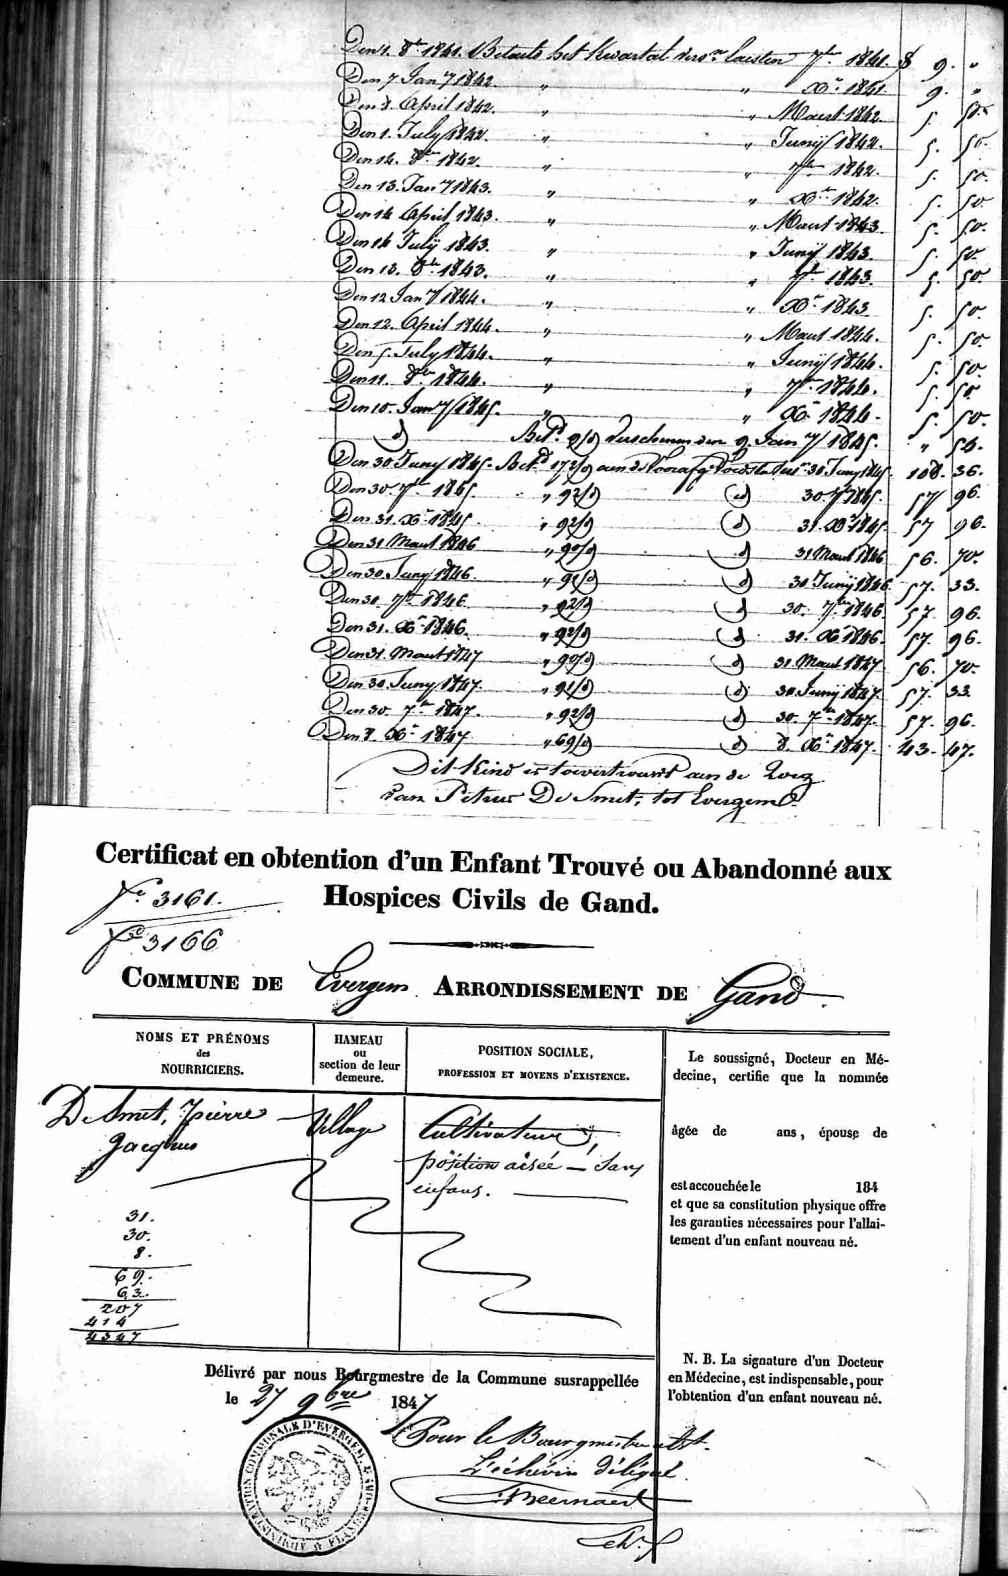 Den 1. 8bre 1841. Betaelt het kwartael laesten 7bre 1841. 9. "
Den 7 Jany 1842. " " Xbre 1841 9. "
Den 8. April 1842. " " Maert 1842. 5. 50.
Den 1. July 1842. " " Junij 1842. 5. 50.
Den 14. 8bre 1842. " " 7bre 1842. 5. 50.
Den 13. Jany 1843. " " Xbre 1842. 5. 50.
Den 14 April 1843. " " Maert 1843. 5. 50.
Den 14 Julij 1843. " " Junij 1843. 5. 50.
Den 13. 8bre 1843. " " 7bre 1843. 5. 50.
Den 12 Jany 1844. " " Xbre 1843. 5. 50.
Den 12. April 1844. " " Maert 1844. 5. 50.
Den 5. July 1844. " " Junij 1844. 5. 50.
Den 11. 8bre 1844. " " 7bre 1844. 5. 50.
Den 10. Jany 1845. " " Xbre 1844. 5. 50.
d) Betd 9/d den 9. Jany 1845. " 54.
Den 30. Juny 1845. Betd 172/d aen de 30 Juny 1845. 108. 36.
Den 30. 7bre 1845. " 92/d (d) 30. 7bre 1845. 57 96.
Den 31. Xbre 1845. " 92/d (d) 31. Xbre 1845. 57 96.
Den 31 Maert 1846 " 90/d (d) 31 Maert 1846 56. 70.
Den 30. Juny 1846. " 91/d (d) 30 Junij 1846 57. 33.
Den 30. 7bre 1846. " 92/d (d) 30. 7bre 1846. 57. 96.
Den 31. Xbre 1846. " 92/d (d) 31. Xbre 1846. 57. 96.
Den 31. Maert 1847 " 90/d (d) 31 Maert 1847 56. 70.
Den 30. Juny 1847. " 91/d (d) 30 Junij 1847. 57. 33.
Den 30. 7bre 1847. " 92/d (d) 30. 7bre 1847. 57. 96.
Den 8. Xbre 1847 " 69/d (d) 8. Xbre 1847. 43. 47.
Dit kind is toevertrouwt aen de zorg
van Petrus De Smet, tot Evergem.
Certificat en obtention d'un Enfant Trouvé ou Abandonné aux
Hospices Civils de Gand.
3161.
3166
COMMUNE DE Evergem ARRONDISSEMENT DE Gand.
NOMS ET PRÉNOMS
des
NOURRICIERS.
HAMEAU
ou
section de leur
demeure.
POSITION SOCIALE,
PROFESSION ET MOYENS D'EXISTENCE.
De Smet, Pierre
Jacques
Village
Cultivateur,
position aisée — sans
enfans.
31.
30.
8.
69.
63.
207
414
4347
Le soussigné, Docteur en Mé-
decine, certifie que la nommée
âgée de ans, épouse de
est accouchée le 184
et que sa constitution physique offre
les garanties nécessaires pour l'allai-
tement d'un enfant nouveau né.
N. B. La signature d'un Docteur
en Médecine, est indispensable, pour
l'obtention d'un enfant nouveau né.
Délivré par nous Bourgmestre de la Commune susrappellée
le 27 9bre 1847
Pour le Bourgmestre abst.
L'échevin délégué